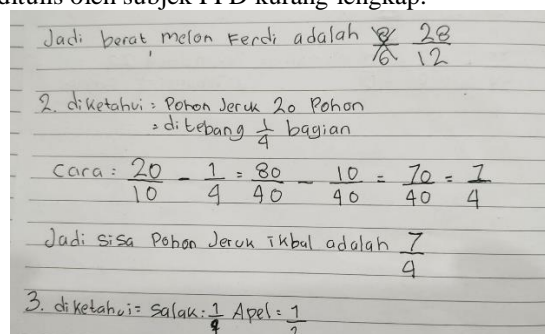 ditulis oleh subjek FFD kurang lengkap.
Jadi berat melon Ferdi adalah 28/12
2. diketahui = Pohon Jeruk 20 Pohon
= di tebang 1/4 bagian
Cara = 20/10 - 1/4 = 80/40 - 10/40 = 70/40 = 7/4
Jadi sisa Pohon Jeruk ikbal adalah 7/4
3. diketahui = Salak : 1/4 Apel = 1/2